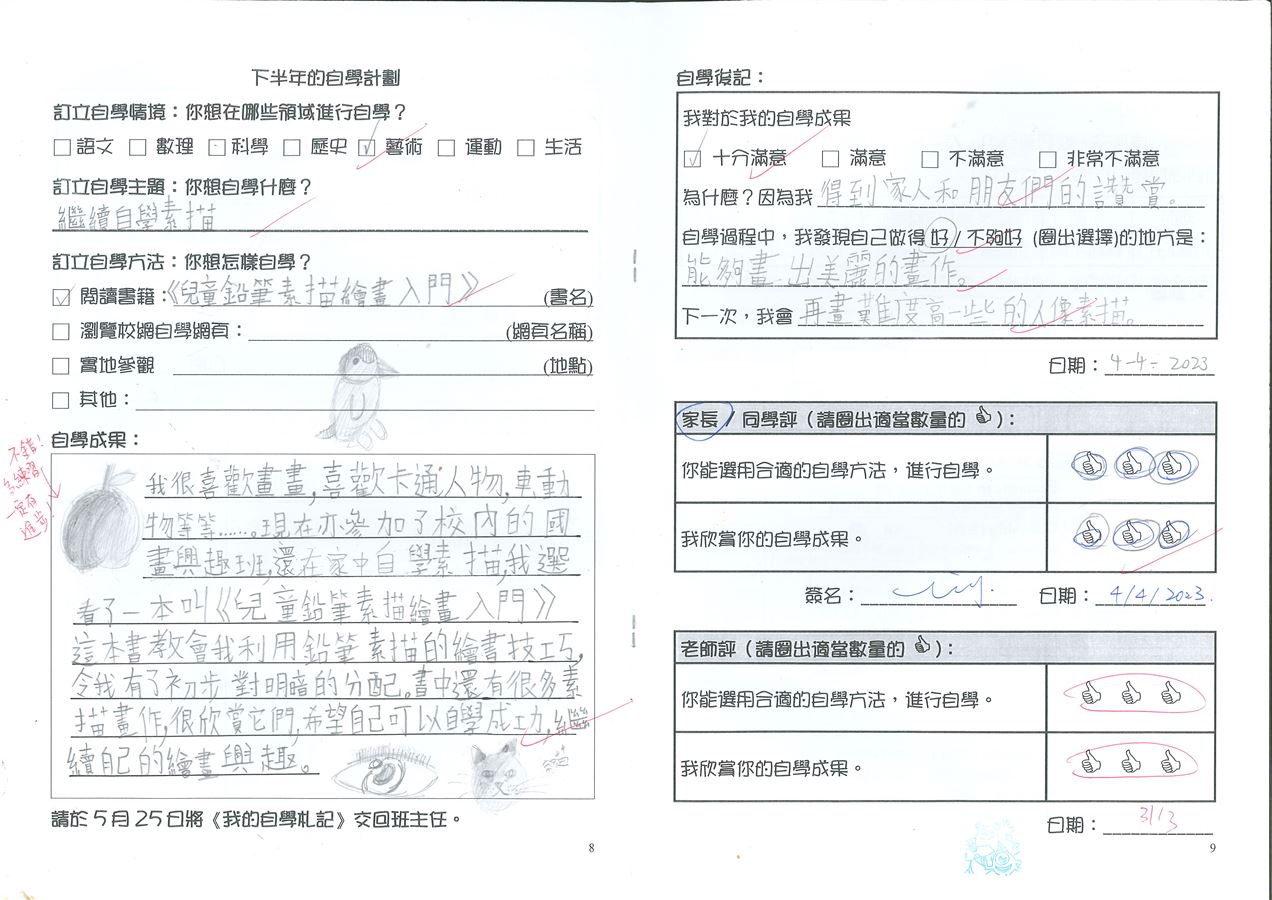 下半年的自學計劃
訂立自學情境：你想在哪些領域進行自學？
□語文 □數理 □科學 □歷史 ☑藝術 □運動 □生活
訂立自學主題：你想自學什麼？
繼續自學素描
訂立自學方法：你想怎樣自學？
☑ 閱讀書籍：《兒童鉛筆素描繪畫入門》(書名)
□ 瀏覽校網自學網頁：(網頁名稱)
□ 實地參觀 (地點)
□ 其他：
自學成果：
不錯！
多練習
一定有
進步！
我很喜歡畫畫,喜歡卡通人物,車動
物等等……。現在亦參加了校內的國
畫興趣班,還在家中自學素描,我選
看了一本叫《兒童鉛筆素描繪畫入門》
這本書教會我利用鉛筆素描的繪畫技巧,
令我有了初步對明暗的分配。書中還有很多素
描畫作,很欣賞它們,希望自己可以自學成功,繼
續自己的繪畫興趣。
請於5月25日將《我的自學札記》交回班主任。
8
自學後記：
我對於我的自學成果
☑ 十分滿意 □ 滿意 □ 不滿意 □ 非常不滿意
為什麼？因為我得到家人和朋友們的讚賞。
自學過程中，我發現自己做得好/不夠好 (圈出選擇)的地方是：
能夠畫出美麗的畫作。
下一次，我會再畫難度高一些的人像素描。
日期：4-4-2023
家長/同學評（請圈出適當數量的👍）：
你能選用合適的自學方法，進行自學。
我欣賞你的自學成果。
簽名： 日期：4/4/2023.
老師評（請圈出適當數量的👍）：
你能選用合適的自學方法，進行自學。
我欣賞你的自學成果。
日期：3/13
9